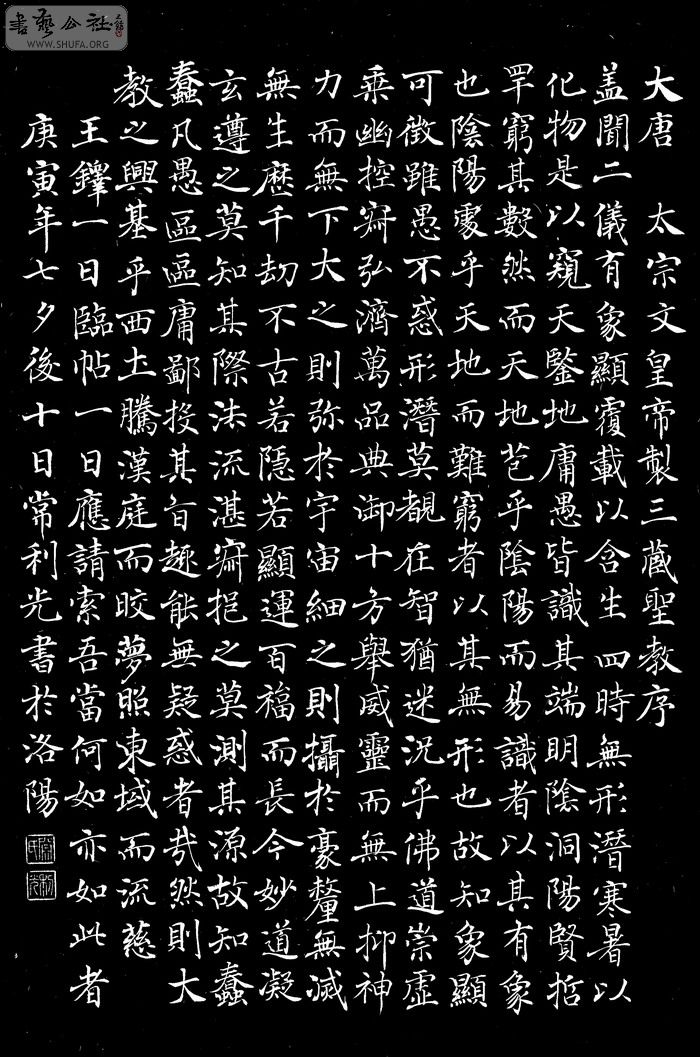 書藝公社
WWW.SHUFA.ORG
大唐 太宗文皇帝製三藏聖教序
盖聞二儀有象顯覆載以含生四時無形潛寒暑以
化物是以窺天鑒地庸愚皆識其端明陰洞陽賢哲
罕窮其數然而天地苞乎陰陽而易識者以其有象
也陰陽處乎天地而難窮者以其無形也故知象顯
可徵雖愚不惑形潛莫覩在智猶迷況乎佛道崇虛
乘幽控寂弘濟萬品典御十方舉威靈而無上抑神
力而無下大之則弥於宇宙細之則攝於豪釐無滅
無生歷千劫不古若隱若顯運百福而長今妙道凝
玄遵之莫知其際法流湛寂挹之莫測其源故知蠢
蠢凡愚區區庸鄙投其旨趣能無疑惑者哉然則大
教之興基乎西土騰漢庭而皎夢照東域而流慈
王鐸一日臨帖一日應請索吾當何如亦如此者
庚寅年七夕後十日常利光書於洛陽